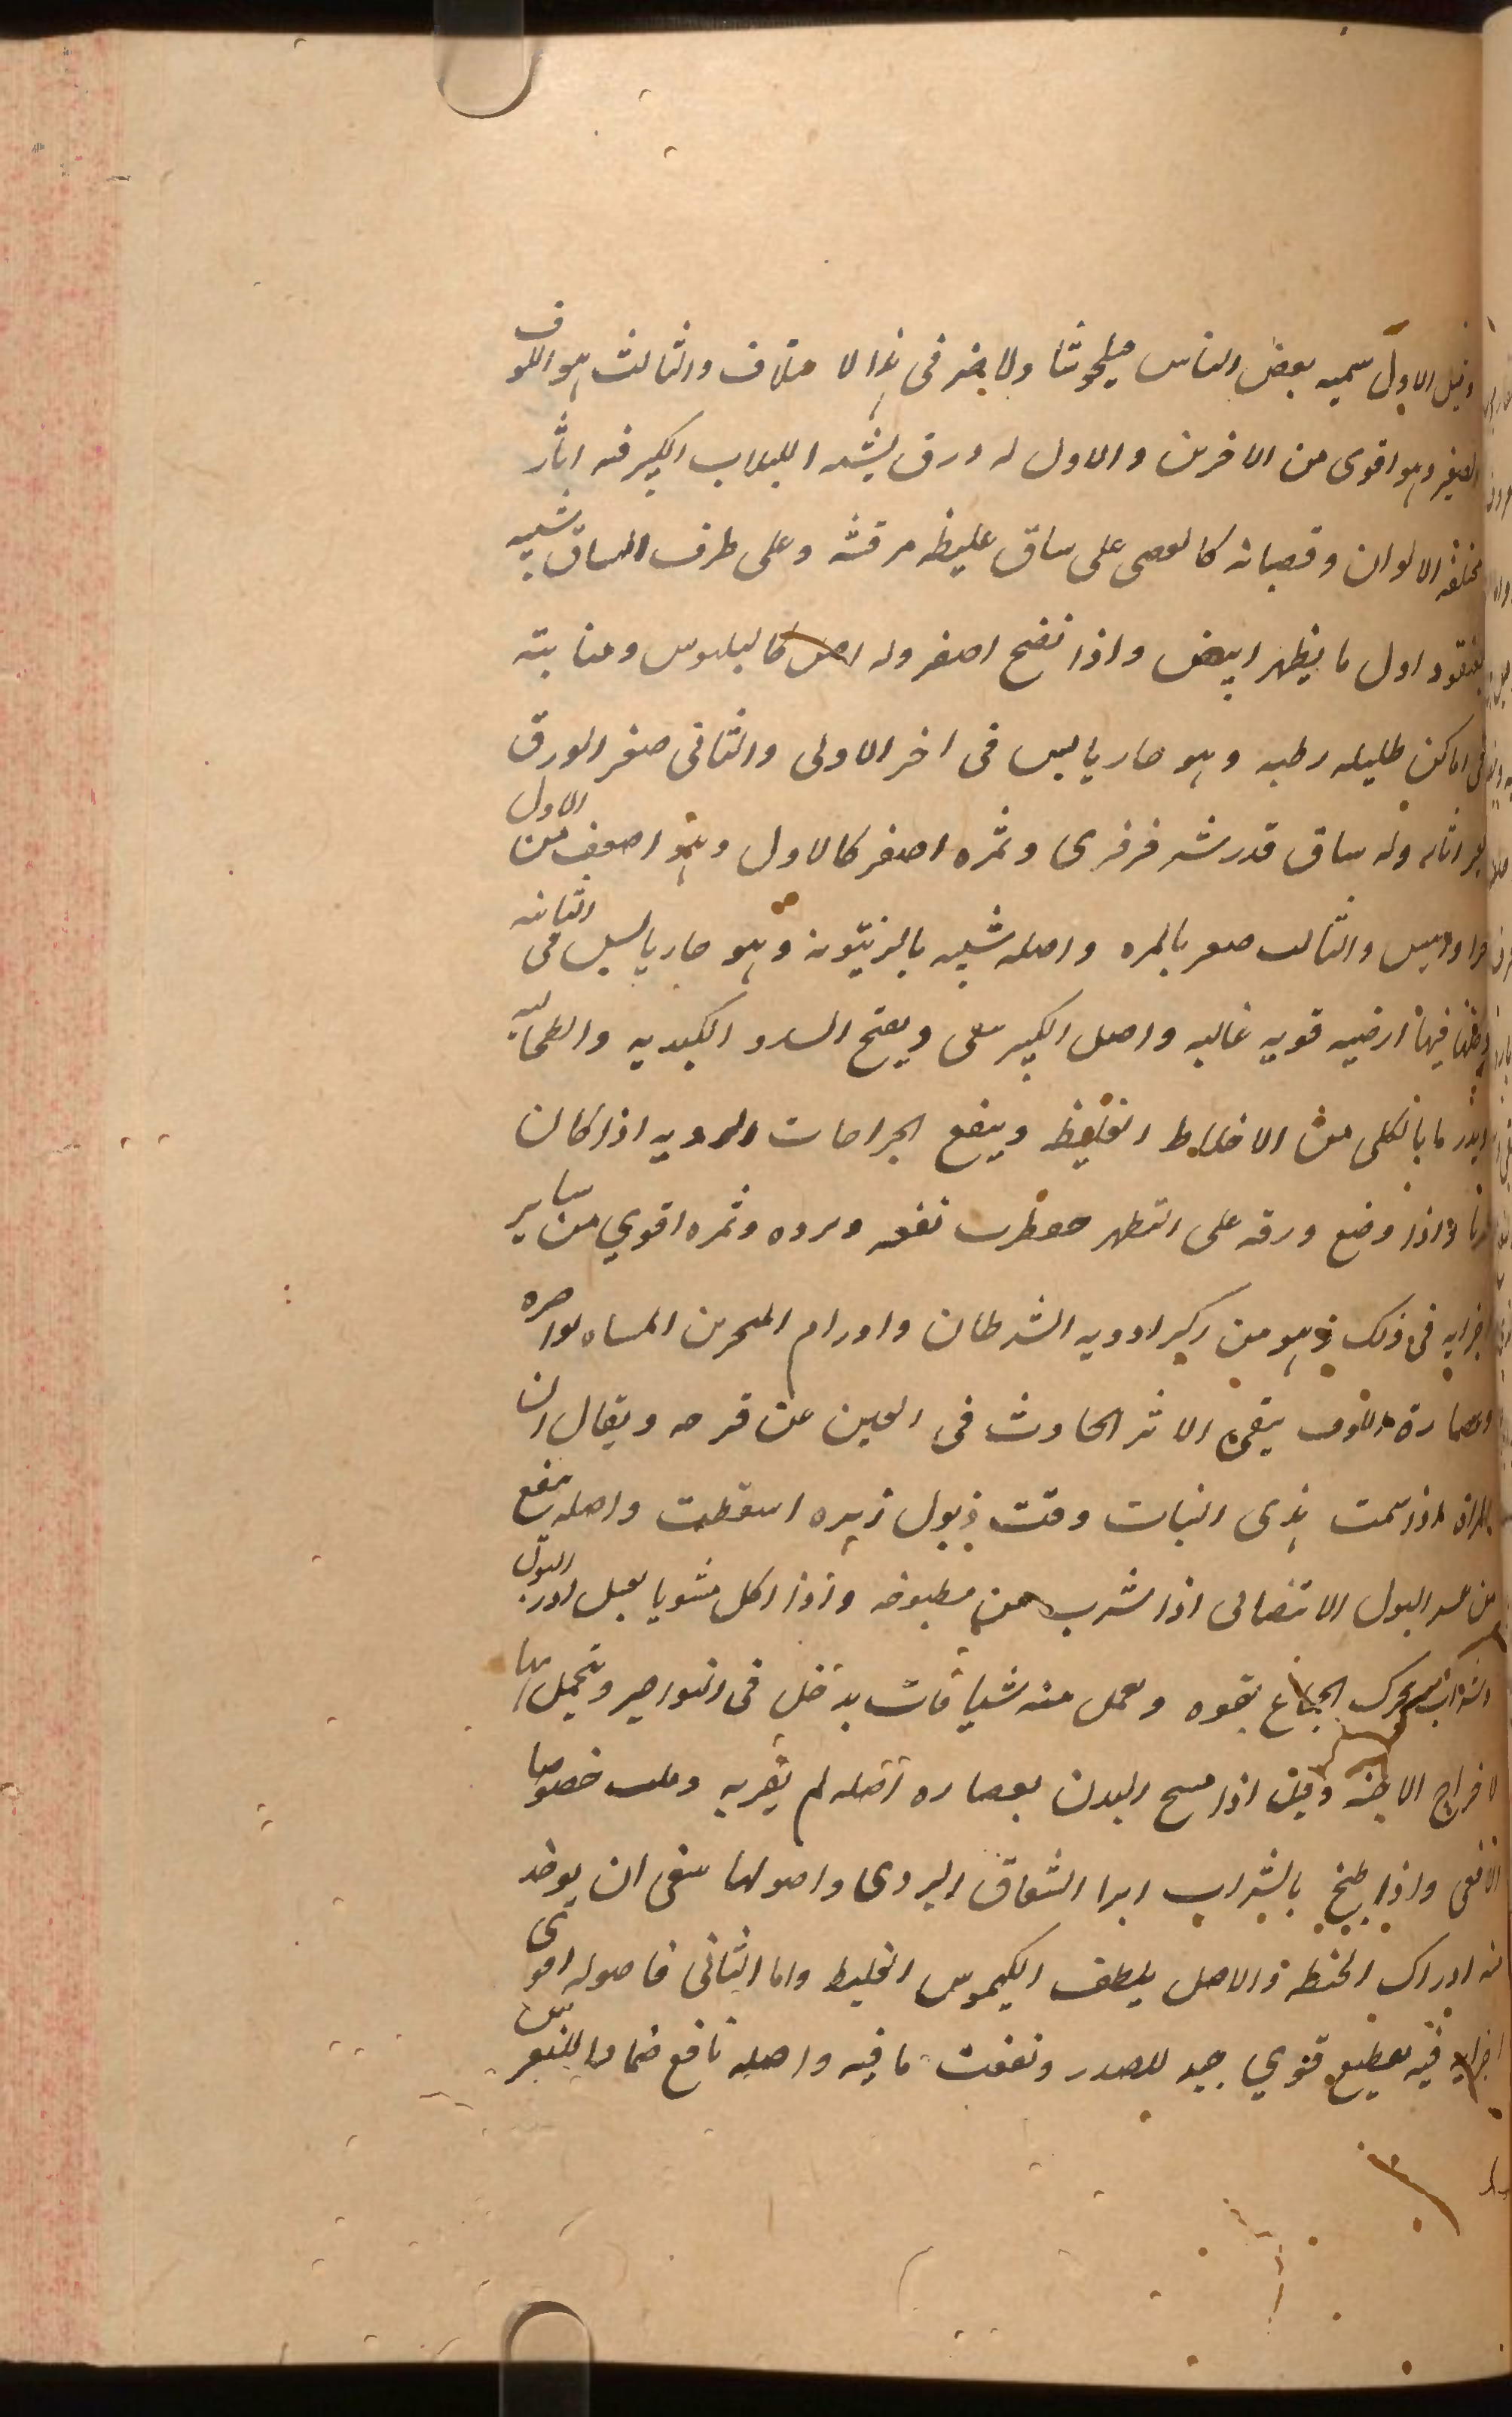 وقيل الاول سميه بعض الناس فيلجوشا ولا خير في هذا الا ختلاف والثالث هو اللوف
الصغير وهو اقوى من الاخرين والاول له ورق يشبه اللبلاب الكبير فيه اثار
مختلفه الالوان وقصباته كالعصى على ساق غليظه مرقشه وعلى طرف الساق شبيه
بعنقود اول ما يظهر ابيض واذا نضج اصفر وله اصل كالبلبوس ومنابته
في اماكن ظليله رطبه وهو حار يابس في اخر الاولى والثاني صغر الورق
اثاره وله ساق قدر شبر فرفرى وثمره اصفر كالاول وهو اضعف من الاول
والثالث صغر بالمره واصله شبيه بالزيتونه وهو حار يابس في الثانيه
فيها ارضيه قويه غالبه واصل الكبير ينقى ويفتح السدد الكبديه والطحاليه
ما بالكلى من الاخلاط الغليظه وينفع الجراحات الرديه اذا كان
واذا وضع ورقه على الظهر نفعه وثمره اقوي من ساير
اجزايه في ذلك وهو من ادويه السرطان واورام المنخرين
وعصارة اللوف ينقى الاثر الحادث في العين عن قرحه ويقال ان
المراة اذا شمت هذى النبات وقت ذبول زهره اسقطت واصله ينفع
من عسر البول الانتصابى اذا شرب من مطبوخه واذا اكل مشويا بعسل ادر البول
يحرك الجماع بقوه ويعمل منه شيافات يدخل في النواصير ويتحمل بها
لاخراج الاجنه وقيل اذا مسح البدن بعصاره اصله لم يقربه خصوصا
الافعى واذا طبخ بالشراب ابرا الشقاق البردى واصولها ينبغى ان يوخذ
ادراك الحنطه والاصل يلطف الكيموس الغليظ واما الثاني فاصوله اقوى
اجزايه فيه تقطيع قوي جيد للصدر ونفث ما فيه واصله نافع ضمادا للنقرس